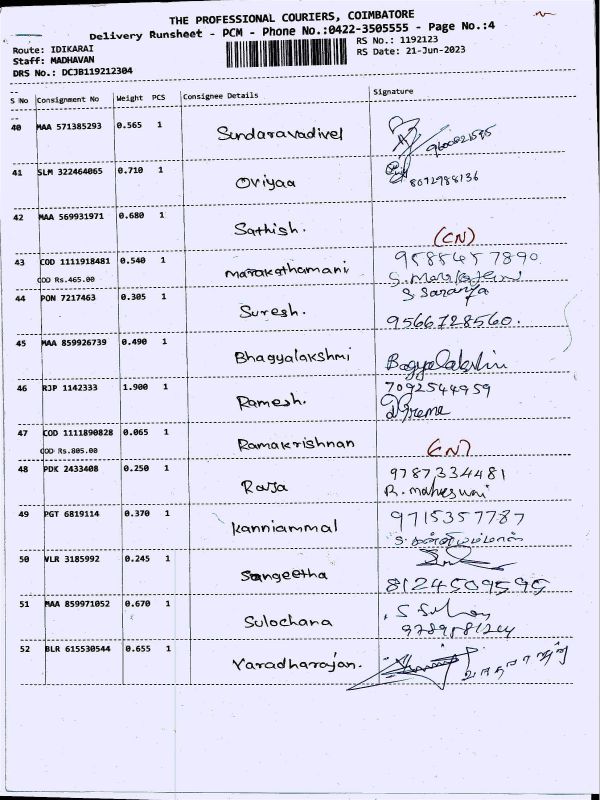 THE PROFESSIONAL COURIERS, COIMBATORE
Delivery Runsheet - PCM - Phone No.:0422-3505555 - Page No.:4
Route: IDIKARAI
RS No.: 1192123
Staff: MADHAVAN
RS Date: 21-Jun-2023
DRS No.: DCJB119212304
S No Consignment No Weight PCS Consignee Details Signature
40 MAA 571385293 0.565 1 Sundaravadivel
41 SLM 322464065 0.710 1 Oviyaa 8072988136
42 MAA 569931971 0.680 1 Sathish. (CN)
43 COD 1111918481 0.540 1 Marakathamani 9585457890
COD Rs.465.00
44 PON 7217463 0.305 1 Suresh. S Saranya
9566728560.
45 MAA 859926739 0.490 1 Bhagyalakshmi
46 RJP 1142333 1.900 1 Ramesh. 7092544959
47 COD 1111890828 0.065 1 Ramakrishnan (CN)
COD Rs.805.00
48 PDK 2433408 0.250 1 Raja 9787334481
R. maheswari
49 PGT 6819114 0.370 1 Kanniammal 9715357787
50 VLR 3185992 0.245 1 Sangeetha
8124509595
51 MAA 859971052 0.670 1 Sulochana
52 BLR 615530544 0.655 1 Varadharajan.